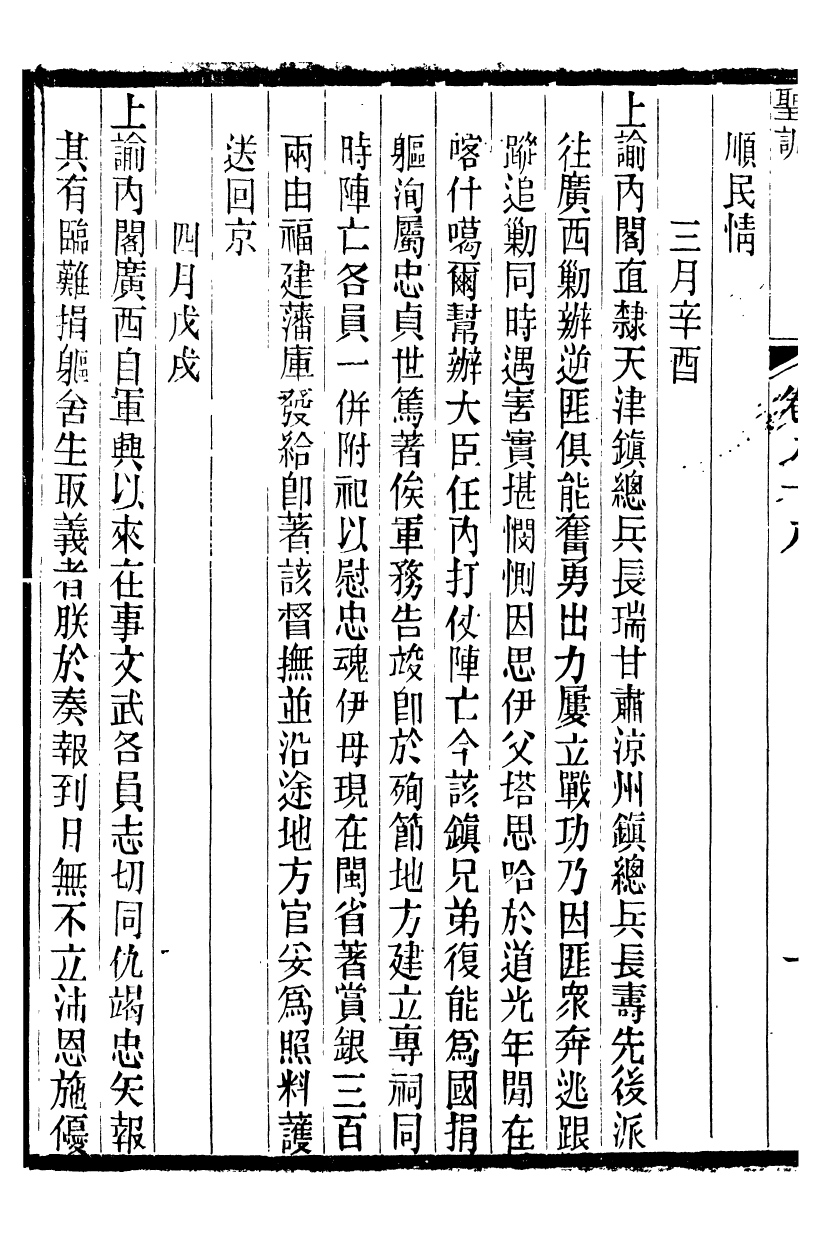 聖訓
卷九十八
一
順民情
三月辛酉
上諭內閣直隸天津鎮總兵長瑞甘肅涼州鎮總兵長壽先後派
往廣西勦辦逆匪俱能奮勇出力屢立戰功乃因匪眾奔逃跟
蹤追勦同時遇害實堪憫惻因思伊父塔思哈於道光年閒在
喀什噶爾幫辦大臣任內打仗陣亡今該鎮兄弟復能爲國捐
軀洵屬忠貞世篤著俟軍務告竣卽於殉節地方建立專祠同
時陣亡各員一併附祀以慰忠魂伊母現在閩省著賞銀三百
兩由福建藩庫發給卽著該督撫並沿途地方官妥爲照料護
送回京
四月戊戌
上諭內閣廣西自軍興以來在事文武各員志切同仇竭忠矢報
其有臨難捐軀舍生取義者朕於奏報到日無不立沛恩施優